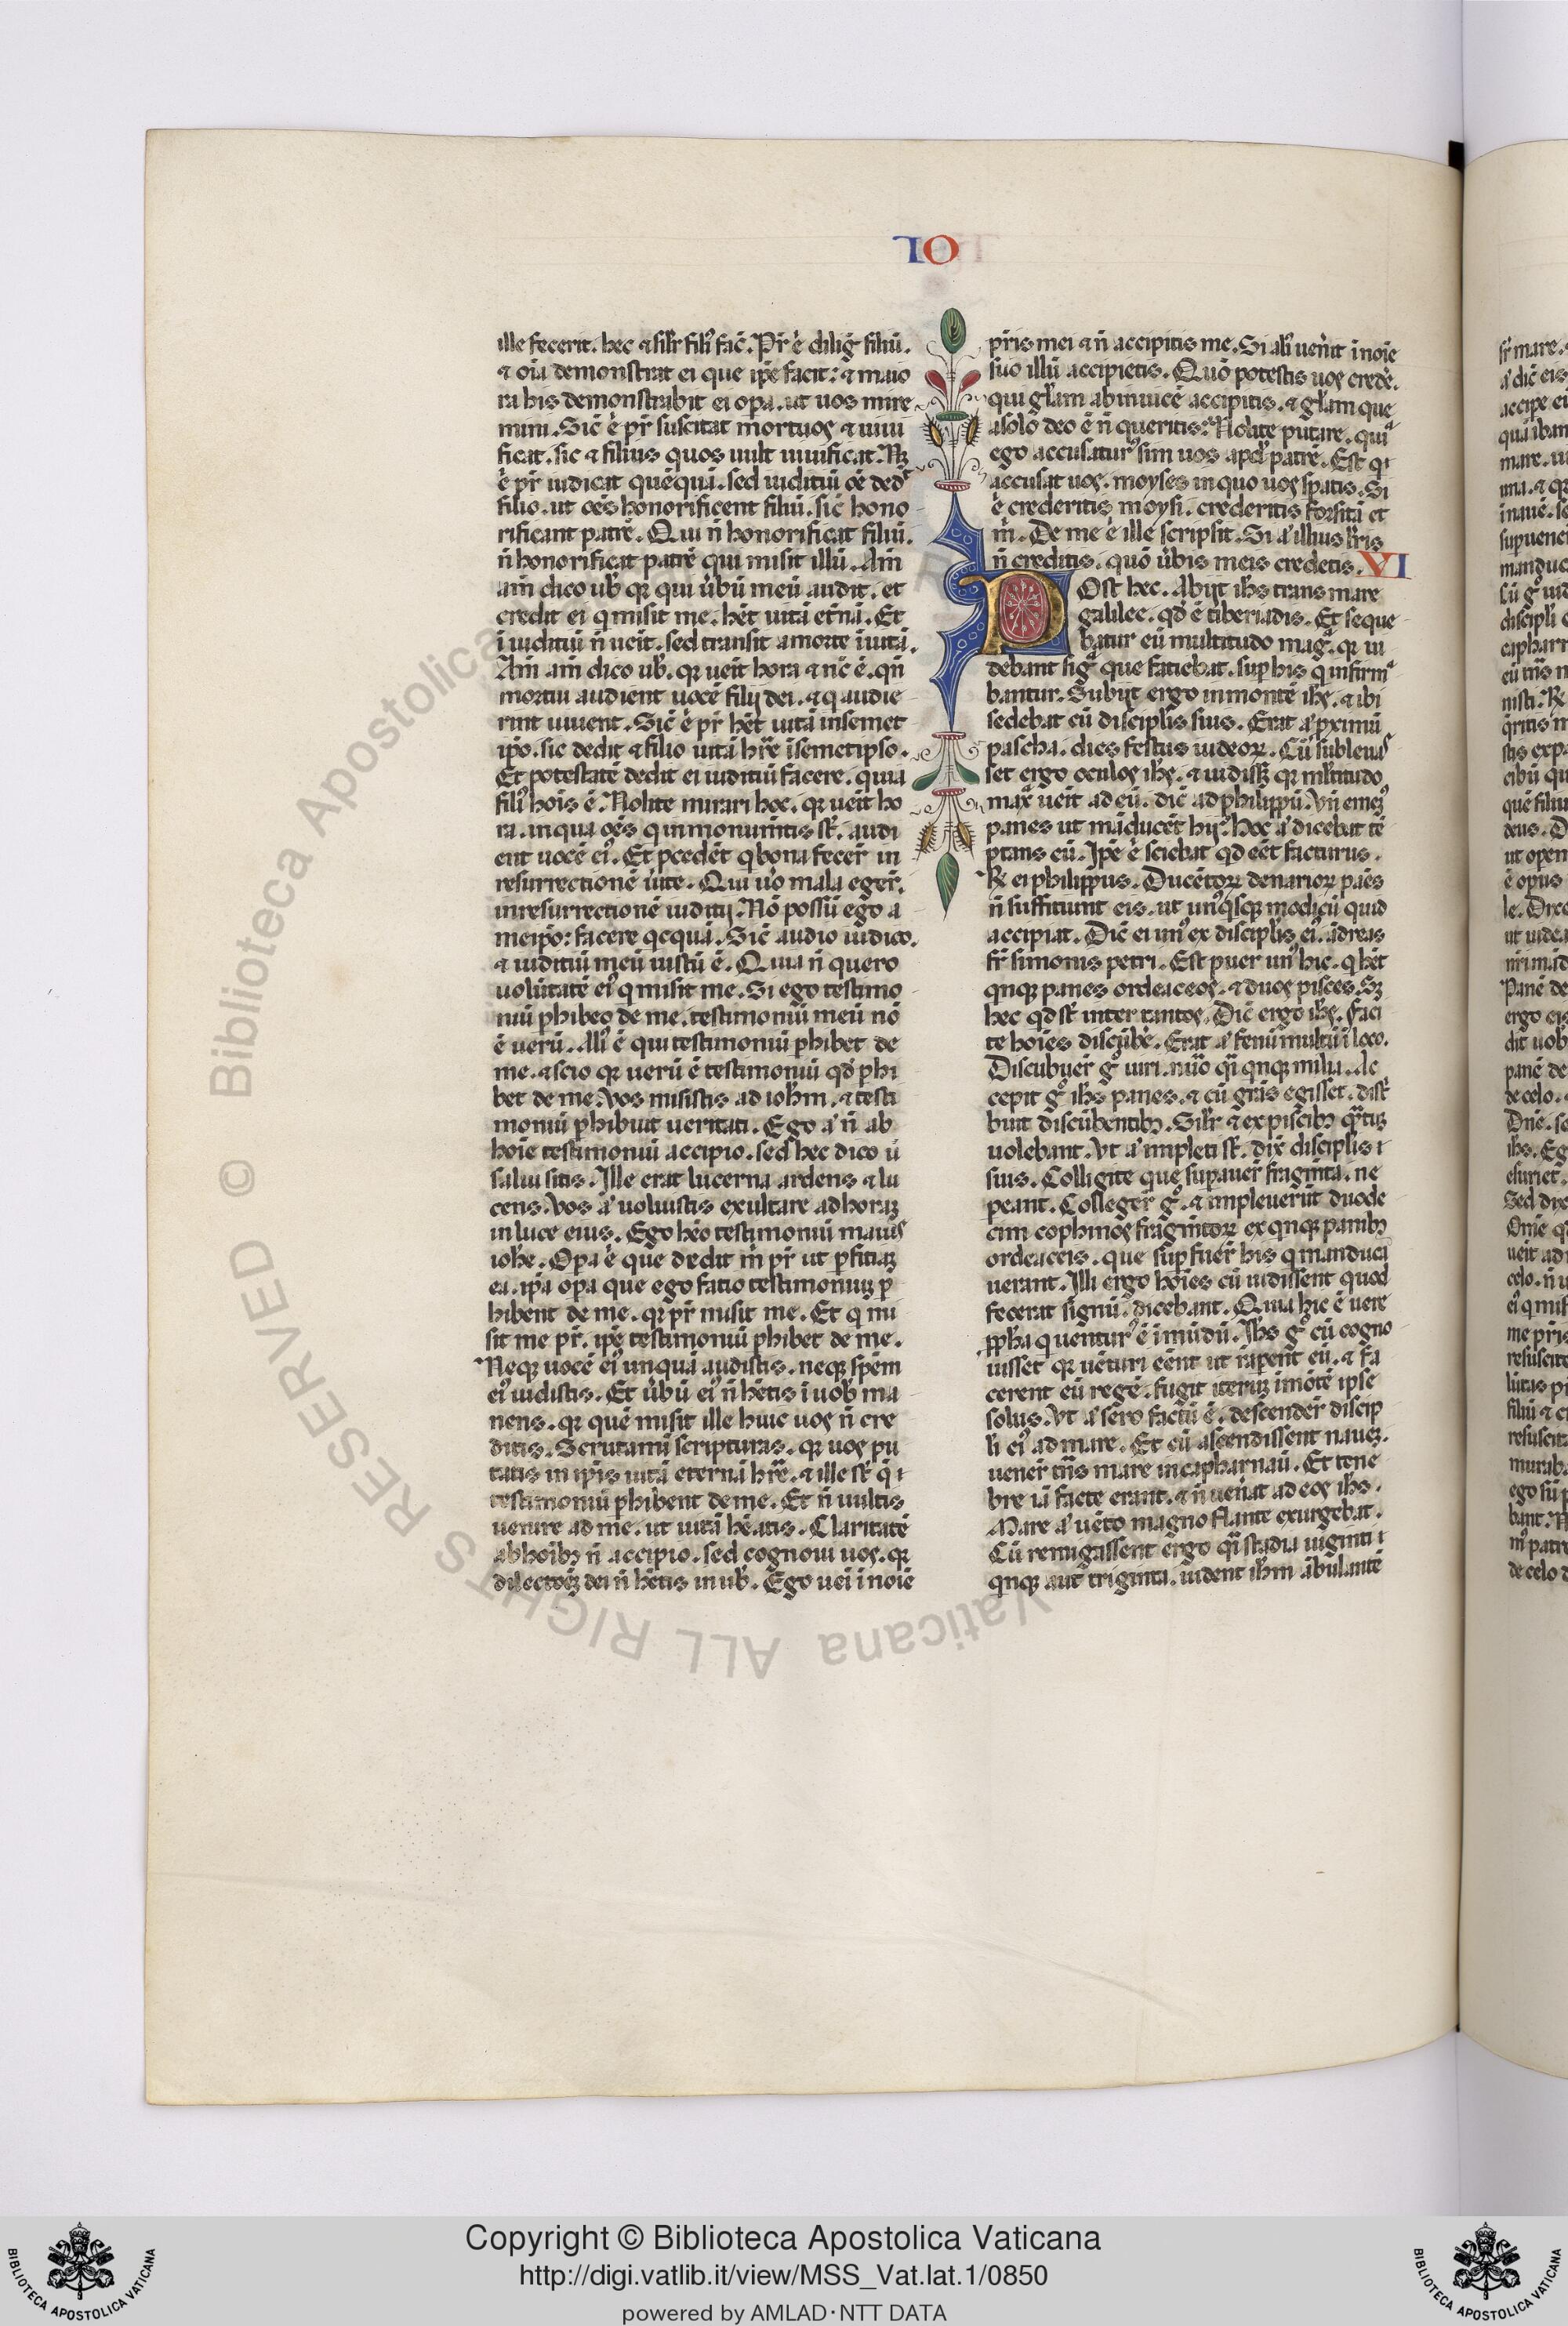 IO
ille fecerit. hec ⁊ silr̃ fili᷒ fac̃. Pr̃ .n. dilig̃ filiũ.
⁊ oĩa demonstrat ei que ip̃e facit: ⁊ maio
ra his demonstrabit ei op̃a. ut uos mire
mini. Sic̃ .n. pr̃ suscitat mortuos ⁊ uiui
ficat. sic ⁊ filius quos uult uiuificat. Nꝫ
.n. pr̃ iudicat quẽquã. sed iuditiũ oẽ ded᷒
filio. ut oẽs honorificent filiũ. sic̃ hono
rificant patrẽ. Qui ñ honorificat filiũ.
ñ honorificat patrẽ qui misit illũ. Am̃
am̃ dico ub̃ qꝛ qui ùbũ meũ audit. et
credit ei q misit me. hẽt uitã et̃nã. Et
ĩ iuditiũ ñ ueit. sed transit a morte ĩ uitã.
Am̃ am̃ dico ub̃. qꝛ ueit hora ⁊ nc̃ ẽ. qñ
mortui audient uocẽ filij dei. ⁊ q audie
rint uiuent. Sic̃ .n. pr̃ hẽt uitã in semet
ip̃o. sic dedit ⁊ filio uitã hr̃e ĩ semetipso.
Et potestatẽ dedit ei iuditiũ facere. quia
fili᷒ hoĩs ẽ. Nolite mirari hoc. qꝛ ueit ho
ra. in qua oẽs q in monum̃tis st̃. audi
ent uocẽ ei᷒. Et ꝓcedẽt q bona fecer̃ in
resurrectionẽ uite. Qui uo mala eger̃.
in resurrectionẽ iuditij. Nõ possũ ego a
meip̃o: facere qcquã. Sic̃ audio iudico.
⁊ iuditiũ meũ iustũ ẽ. Quia ñ quero
uolũtatẽ ei᷒ q misit me. Si ego testimo
niũ ꝑhibeo de me. testimoniũ meũ nõ
ẽ uerũ. Ali᷒ ẽ qui testimoniũ ꝑhibet de
me. ⁊ scio qꝛ uerũ ẽ testimoniũ qd̃ ꝑhi
bet de me. Vos misistis ad ioh̃m. ⁊ testi
moniũ ꝑhibuit ueritati. Ego a᷒ ñ ab
hoĩe testimoniũ accipio. sed hec dico ũ
salui sitis. Ille erat lucerna ardens ⁊ lu
cens. Vos a᷒ uoluistis exultare ad horaꝫ
in luce eius. Ego hẽo testimoniũ maius
ioh̃e. Op̃a .n. que dedit m̃ pr̃ ut ꝑfitiaꝫ
ea. ip̃a op̃a que ego fatio testimoniuꝫ ꝑ
hibent de me. qꝛ pr̃ misit me. Et q mi
sit me pr̃. ip̃e testimoniũ ꝑhibet de me.
Neqꝫ uocẽ ei᷒ unquã audistis. neqꝫ spẽm
ei᷒ uidistis. Et ùbũ ei᷒ ñ hẽtis ĩ uob̃ ma
nens. qꝛ quẽ misit ille huic uos ñ cre
ditis. Scrutamĩ scripturas. qꝛ uos pu
tatis in ip̃is uitã eternã hr̃e. ⁊ ille st̃ q̃
testimoniũ ꝑhibent de me. Et ñ uultis
uenire ad me. ut uitã hẽatis. Claritatẽ
ab hoĩbꝫ ñ accipio. sed cognoui uos. qꝛ
dilectõꝫ dei ñ hẽtis in ub̃. Ego uei ĩ noĩe
pr̃is mei ⁊ ñ accipitis me. Si ali᷒ uen̾it ĩ noĩe
suo illũ accipietis. Quõ potestis uos crede᷒.
qui gl̃am ab inuicẽ accipitis. ⁊ gl̃am que
a solo deo ẽ ñ queritis: Nolite putare. quiª
ego accusatur᷒ sim uos apd̃ patrẽ. Est qi
accusat uos. moyses in quo uos sꝑatis. Si
.n. crederitis moysi. crederitis forsitã et
m̃. De me .n. ille scripsit. Si a᷒ illius l̃ris
ñ creditis. quõ ùbis meis credetis. VI
Post hec. Abijt ihs̃ trans mare
galilee. qd̃ ẽ tiberiadis. Et seque
batur eũ multitudo magª. qꝛ ui
debant sigª que fatiebat. suꝑ his q infirmª
bantur. Subijt ergo in montẽ ihs̃. ⁊ ibi
sedebat cũ discipl̃is suis. Erat a᷒ ꝓximũ
pascha. dies festus iudeoꝝ. Cũ subleuas
set ergo oculos ihs̃. ⁊ uidissꝫ qꝛ ml̃titudo
maxª ueit ad eũ. dic̃ ad philippũ. Vñ emeꝫ᷒
panes ut mãducẽt hij: Hoc a᷒ dicebat tẽ
ptans eũ. Ip̃e .n. sciebat qd eẽt facturus.
R̃ ei philippus. Ducẽtoꝝ denarioꝝ paẽs
ñ suffitiunt eis. ut un᷒qsqꝫ modicũ quid
accipiat. Dic̃ ei un᷒ ex discipl̃is ei᷒. ãdreas
fr̃ simonis petri. Est puer un᷒ hic. q hẽt
qnqꝫ panes ordeaceos. ⁊ duos pisces. Sꝫ
hec qd st̃ inter tantos. Dic̃ ergo ihs̃. Faci
te hoĩes discũbe᷒. Erat a᷒ fenũ multũ ĩ loco.
Discubuer̃ g̊ uiri. nũo qªi qnqꝫ milia. Ac
cepit g̊ ihs̃ panes. ⁊ cũ gr̃as egisset. dist̃
buit discũbentibꝫ. Silr̃ ⁊ ex piscibꝫ qªtuꝫ
uolebant. Vt a᷒ impleti st̃. dix̃ discipl̃is
suis. Colligite que suꝑauer̃ frag̃nta. ne
ꝑeant. Colleger̃ g̊. ⁊ impleuerũt duode
cim cophinos frag̃ntoꝝ ex qnqꝫ panibꝫ
ordeaceis. que suꝑfuer̃ his q manduca
uerant. Illi ergo hoĩes cũ uidissent quod
fecerat signũ. dicebant. Quia hic ẽ uere
ꝓph̃a q uentur᷒ ẽ ĩ mũdũ. Ihs̃ g̊ cũ cogno
uisset qꝛ uẽturi eẽnt ut raꝑent eũ. ⁊ fa
cerent eũ regẽ. fugit iteruꝫ ĩ mõtẽ ipse
solus. Vt a᷒ sero factũ ẽ. descender̃ discip
li ei᷒ ad mare. Et cũ ascendissent naueꝫ.
uener̃ tñs mare in capharnaũ. Et tene
bre iã facte erant. ⁊ ñ uen̾at ad eos ihs̃.
Mare a᷒ uẽto magno flante exurgebat.
Cũ remigassent ergo qªi stadia uiginti
qnqꝫ aut triginta. uident ih̃m ãbulantẽ
© Biblioteca Apostolica Vaticana ALL RIGHTS RESERVED
Copyright © Biblioteca Apostolica Vaticana
http://digi.vatlib.it/view/MSS_Vat.lat.1/0850
powered by AMLAD·NTT DATA
BIBLIOTECA APOSTOLICA VATICANA
BIBLIOTECA APOSTOLICA VATICANA